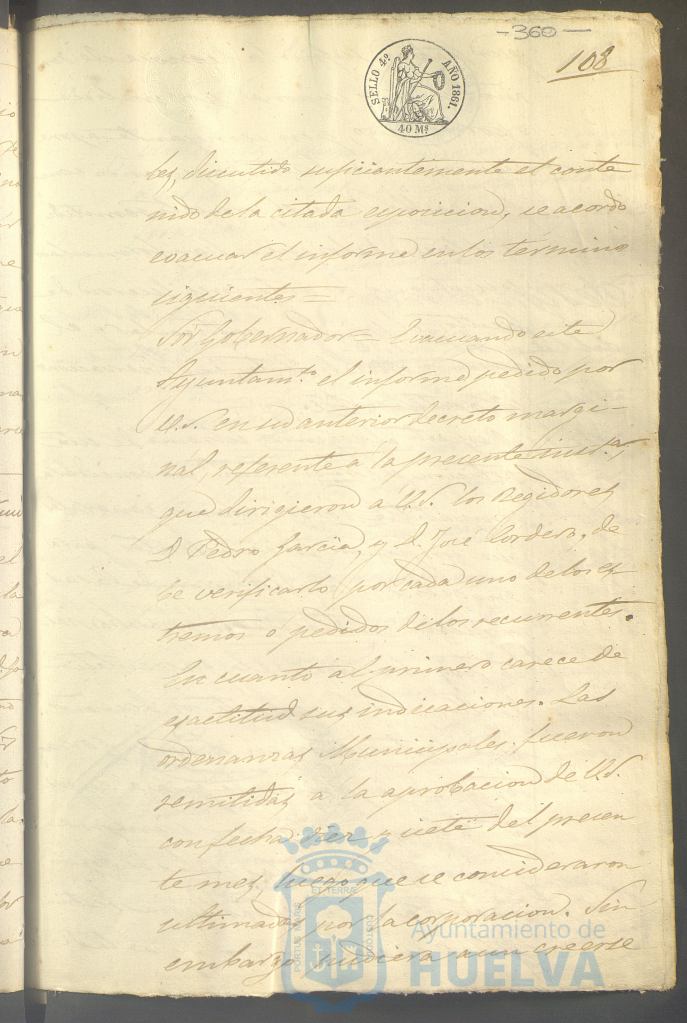 -360-
108
SELLO 4º AÑO 1861.
40 Mˢ
les, discutido suficientemente el conte
nido de la citada exposicion, se acordo
evacuar el informe en los términos
siguientes =
Sor Gobernador = Evacuando este
Ayuntamto. el informe pedido por
V.S. en su anterior decreto margi-
nal, referente á la presente
que dirigieron a V.S. los Regidores
D. Pedro Garcia, y D. José Cordero, de
be verificarlo por cada uno de los es
tremos ó pedidos de los recurrentes.
En cuanto al primero carece de
exactitud sus indicaciones. Las
ordenanzas Municipales fueron
remitidas a la aprobacion de V.S.
con fecha diez y siete del presen
te mes, luego que se consideraron
ultimadas por la corporacion. Sin
embargo pudiera aun creerse
ET TERRÆ
PORTUS MARIS
CUSTODIA
Ayuntamiento de
HUELVA